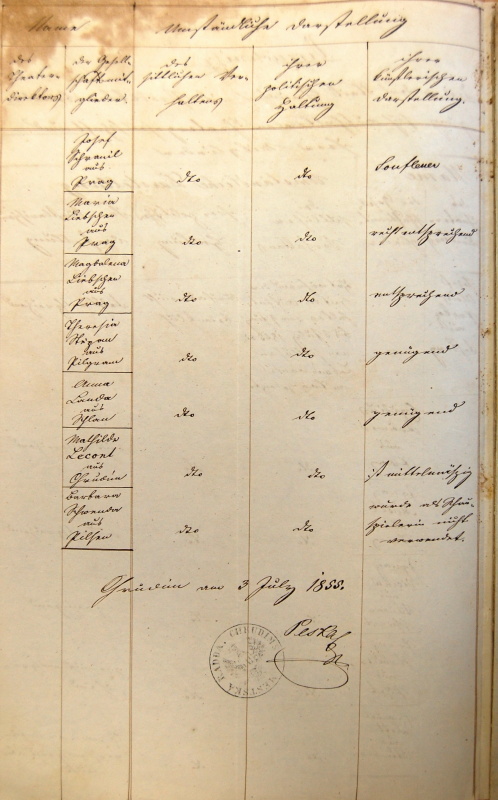 Name Umständliche Darstellung
des Theater-direktors
der Gesell-schaftsmit-glieder
des sittlichen Ver-haltens
ihrer politischen Haltung
ihrer künstlerischen Darstellung.
Josef
aus
Prag
dto
dto
Souffleur
Maria
Liebschen
aus
Prag
dto
dto
recht entsprechend
Magdalena
Liebschen
aus
Prag
dto
dto
entsprechend
Theresia
aus
Pilgram
dto
dto
genügend
Anna
Landa
aus
Schlan
dto
dto
genügend
Mathilde
Lecont
aus
Chrudim
dto
dto
ist mittelmäßig
Barbara
Schwenda
aus
Pilsen
dto
dto
wurde als Schau-
spielerin nicht
verwendet.
Chrudim am 3 July 1855.
Peska